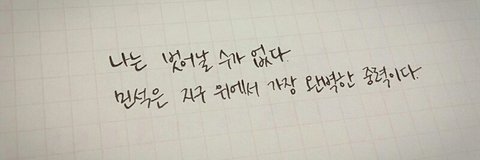 나는 벗어날 수가 없다.
민석은 지구 위에서 가장 완벽한 중력이다.